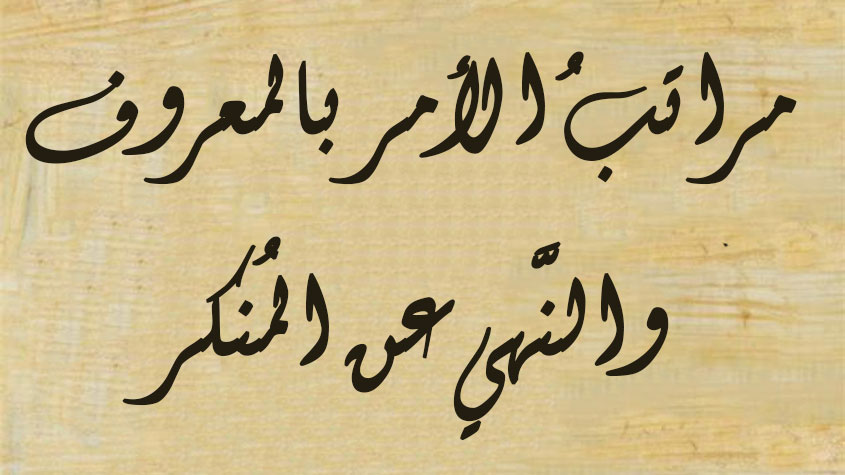 مراتبُ الأمر بالمعروف
والنَّهي عن المُنكر